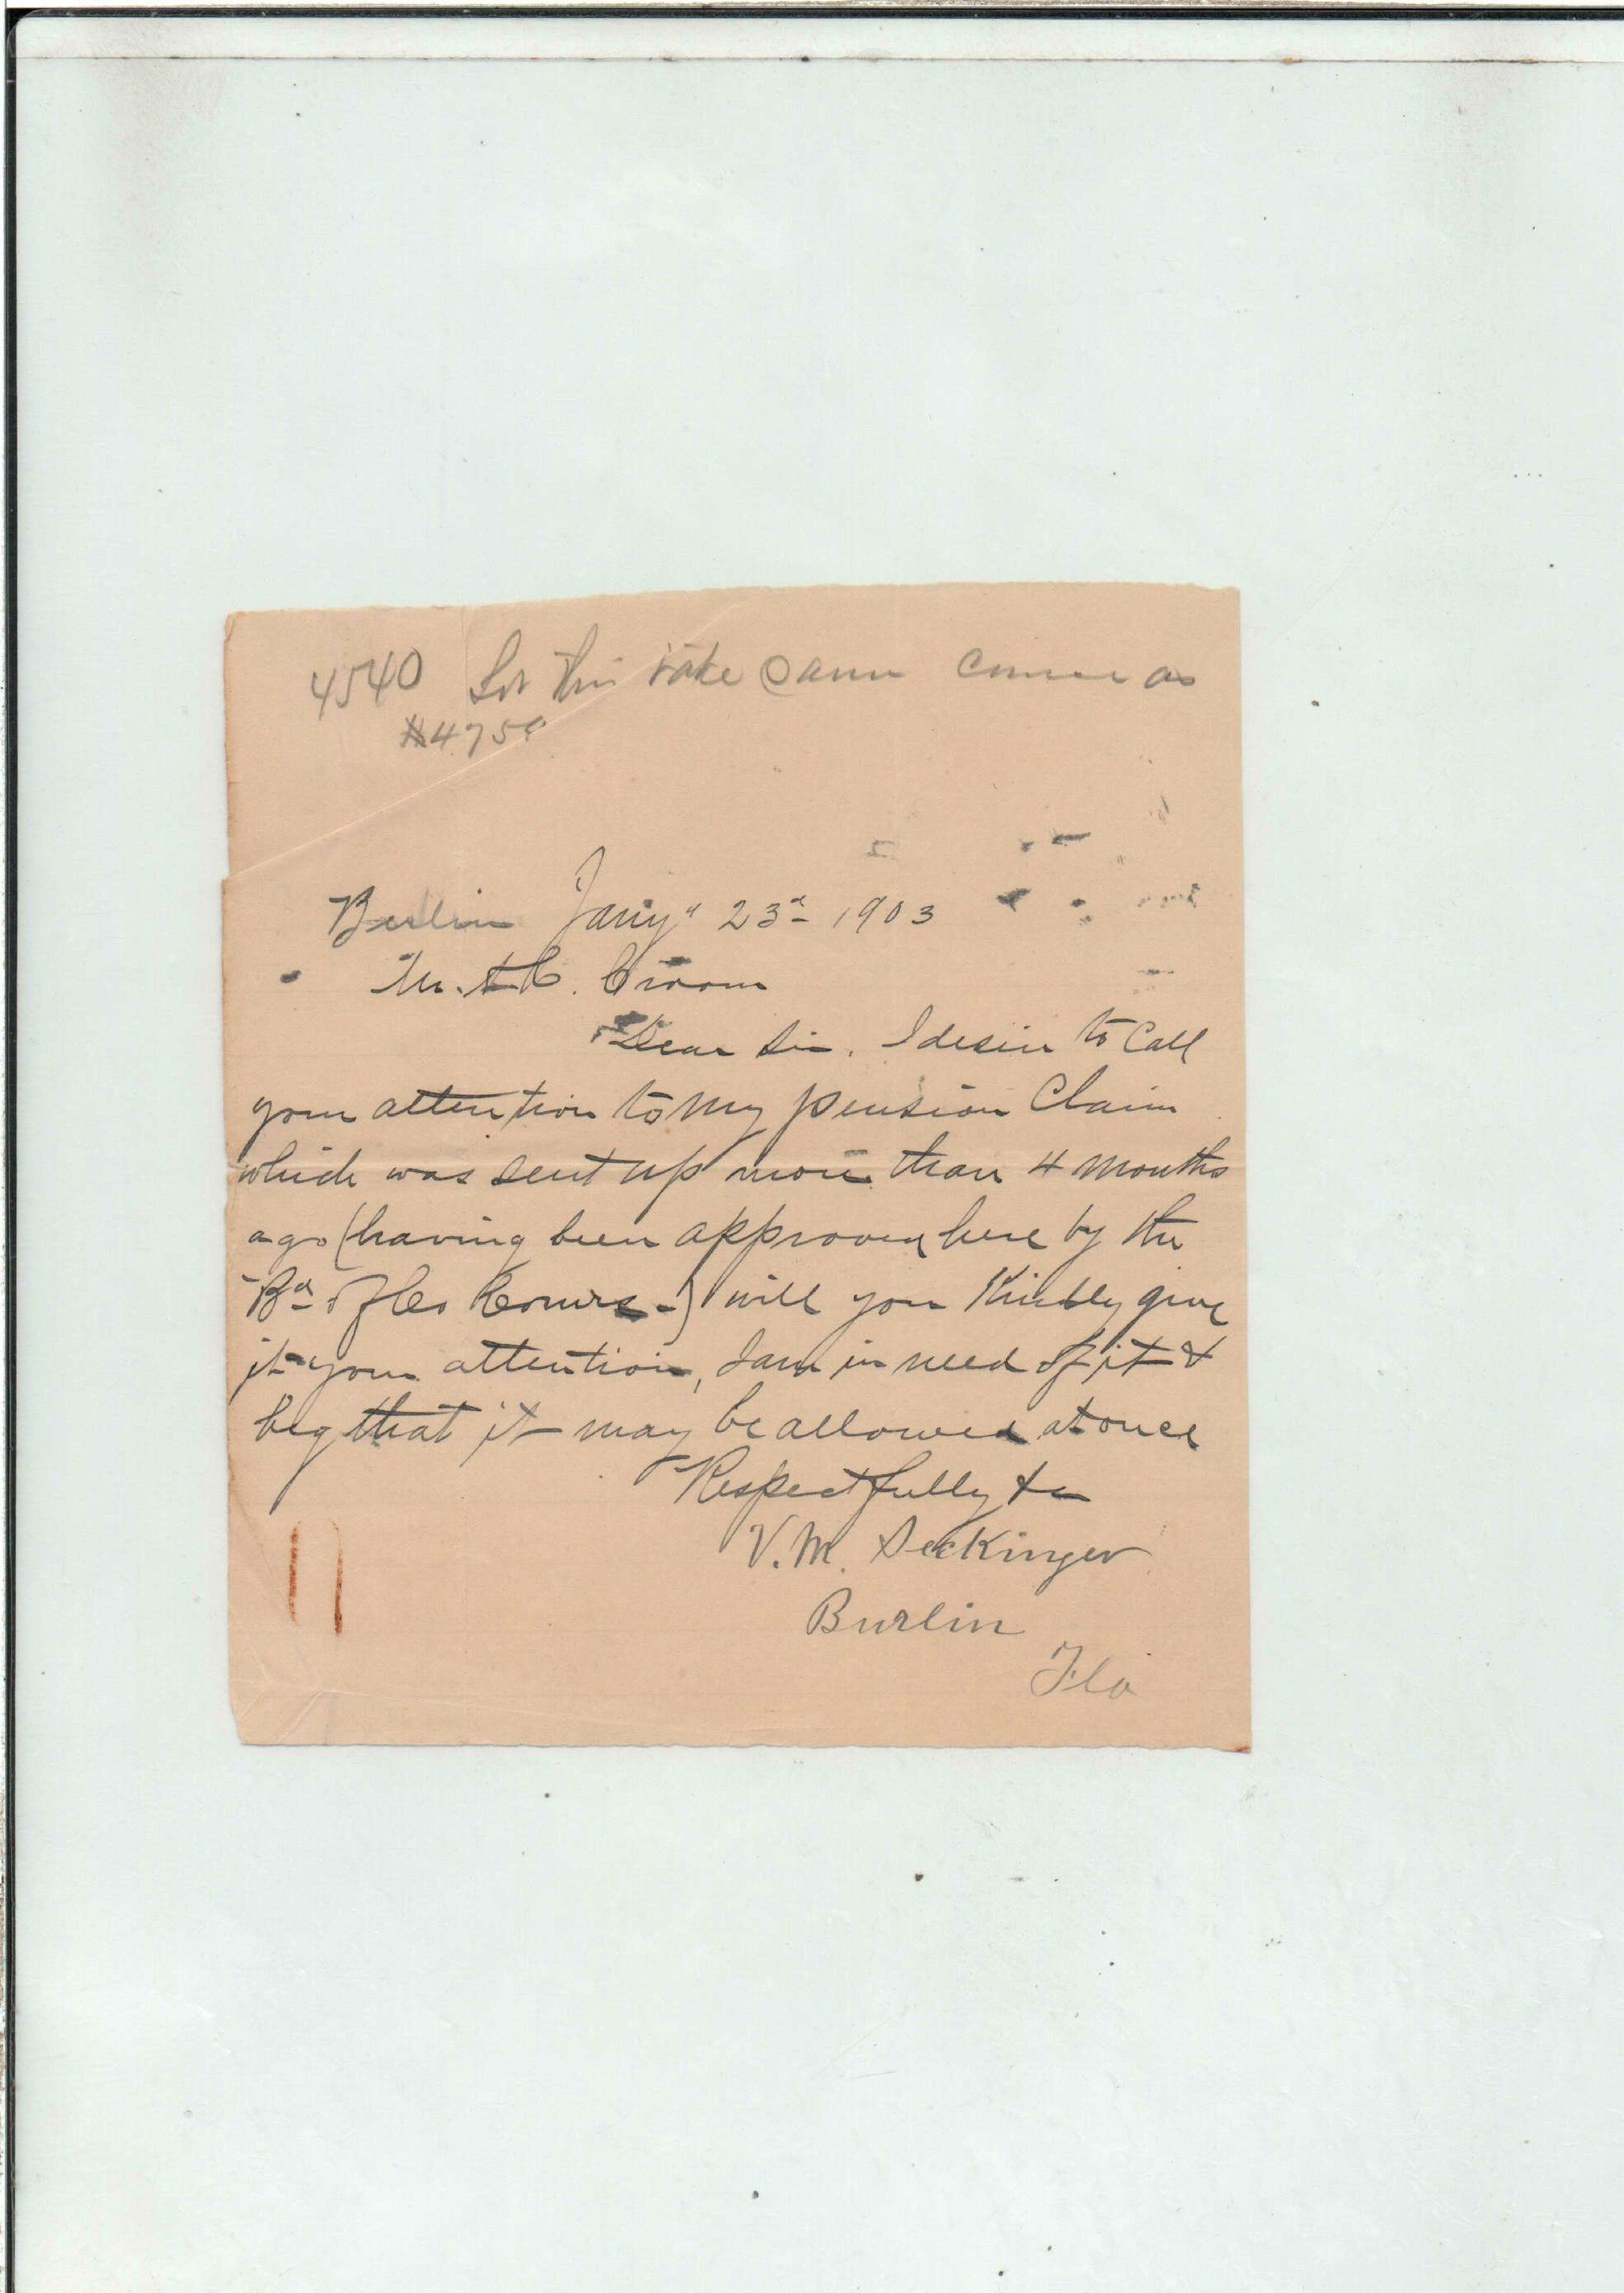 4540 Let this take same course as
#4750
Berlin Jany 23d 1903
Mr. A.C. Croom
Dear Sir. I desire to Call
your attention to my pension Claim
which was sent up more than 4 months
ago (having been approved here by the
Bd of Co Comrs -) will you Kindly give
it your attention, I am in need of it &
beg that it may be allowed at once
Respectfully &c
V. M. Seckinger
Burlin
Fla